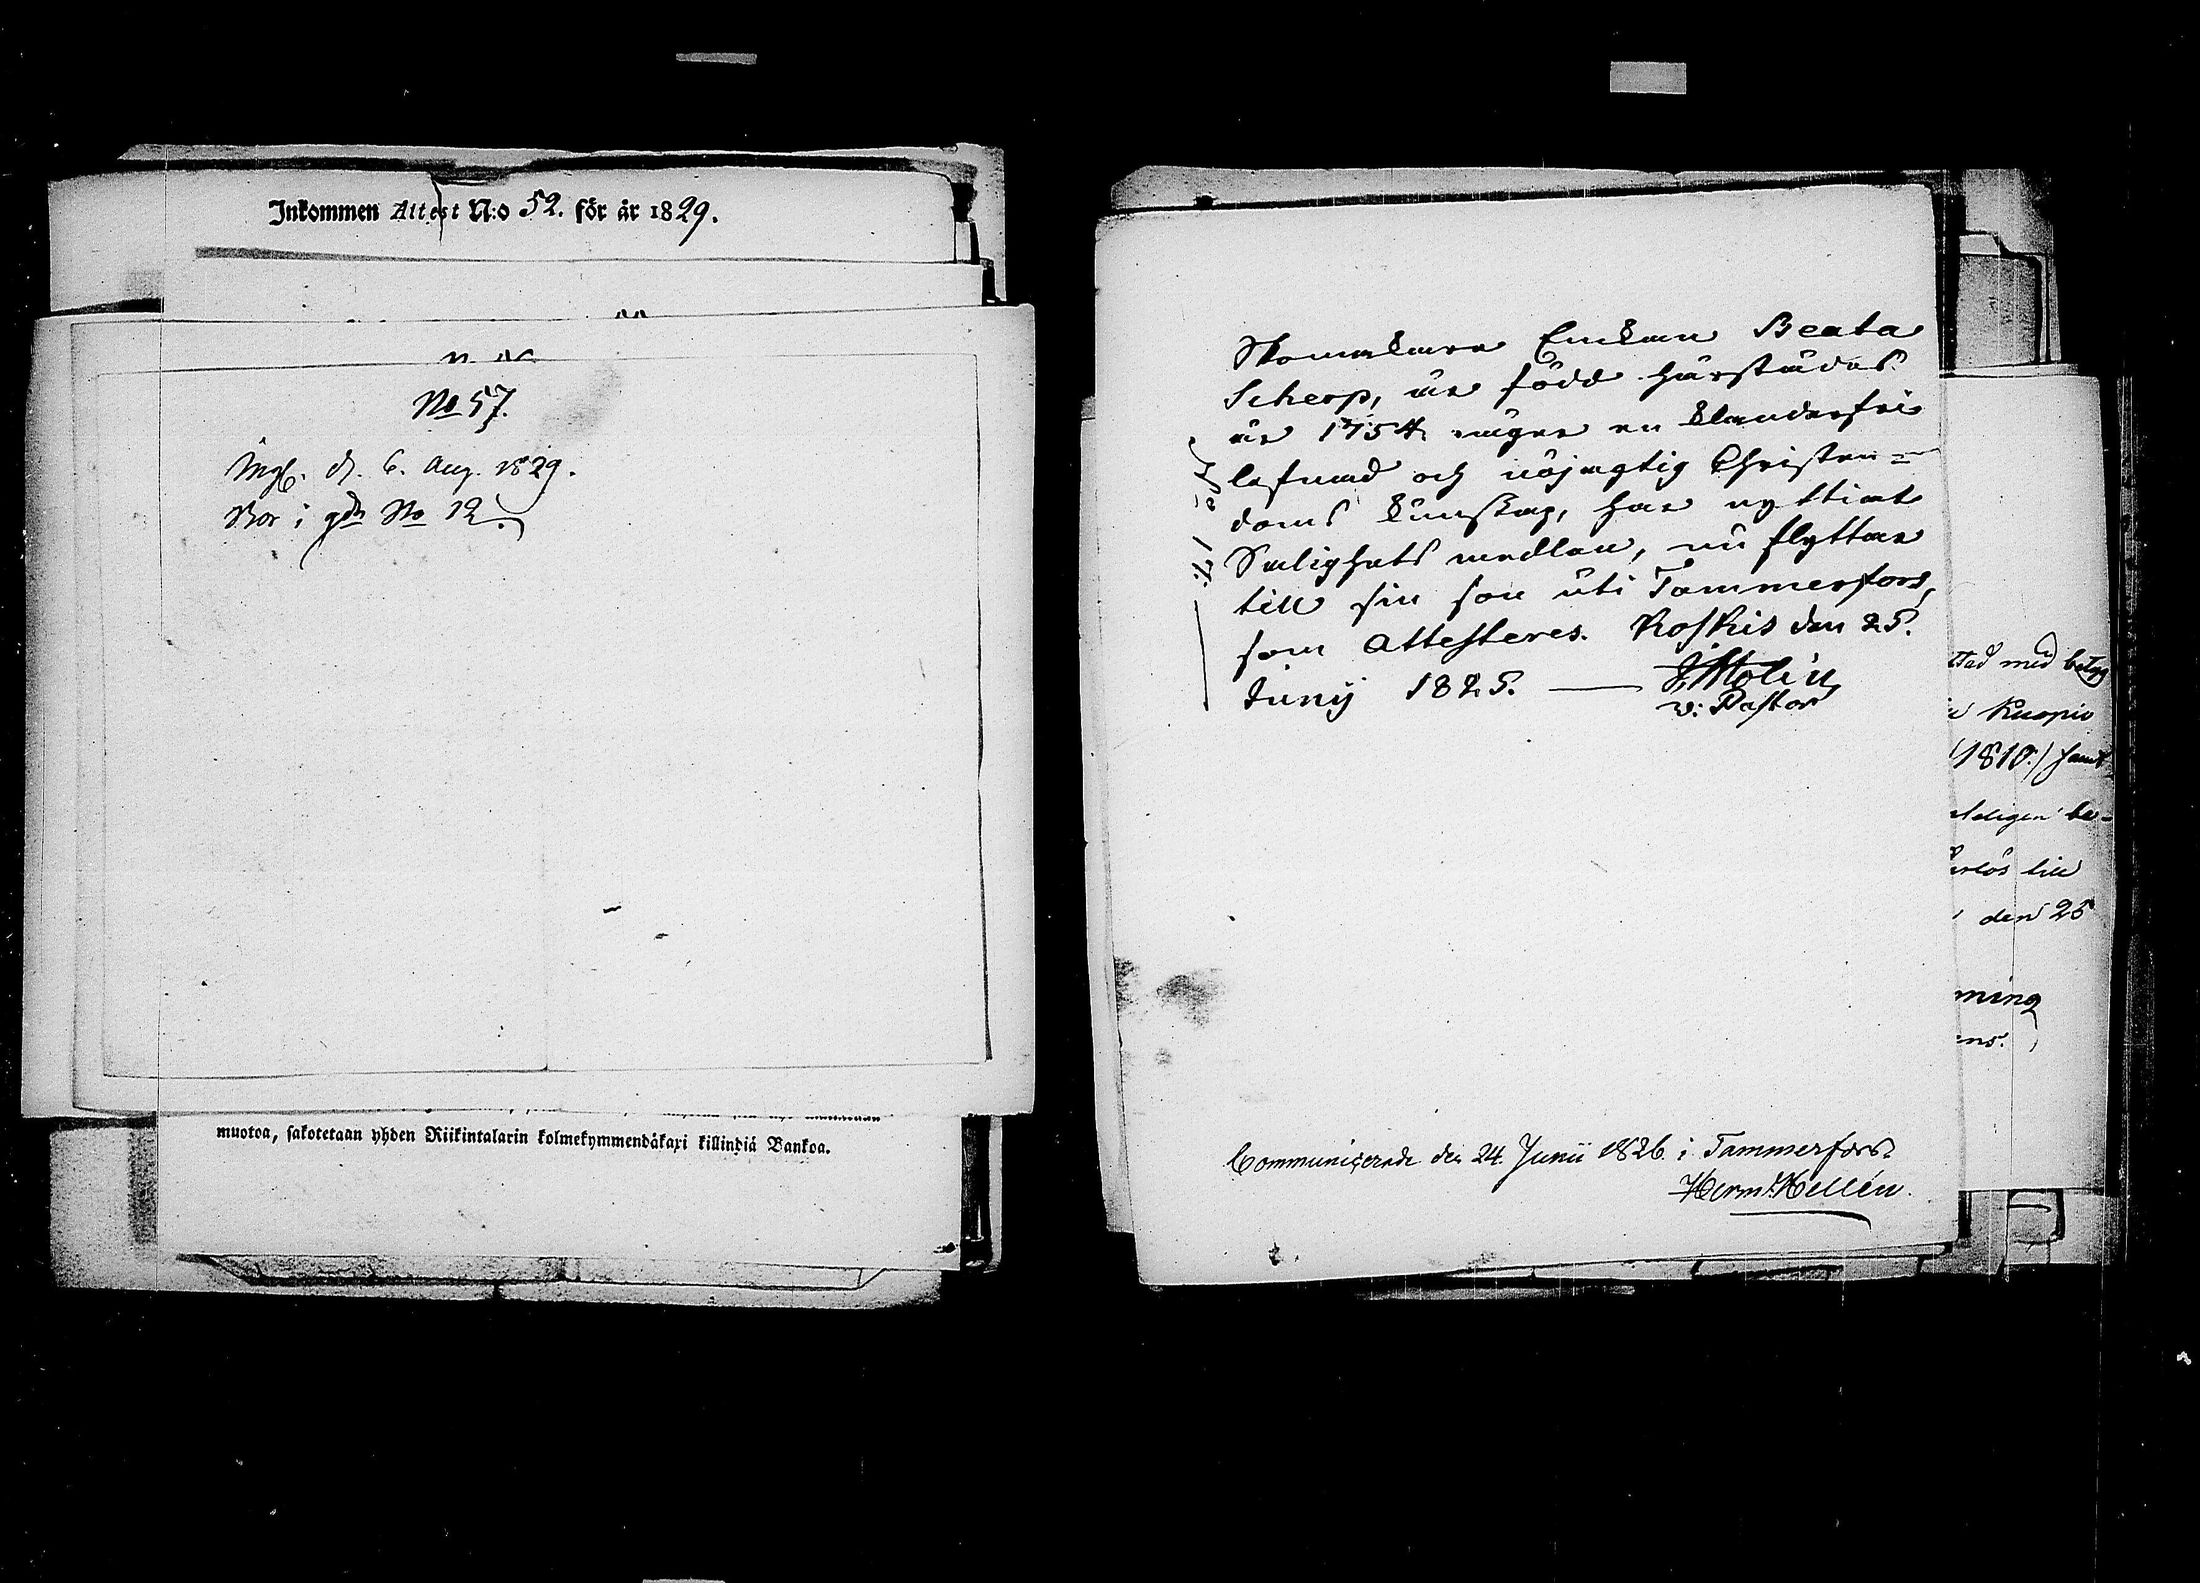 Inkommen Attest N:o 52. för år 1829.
No 57.
Ingf. d. 6. Aug. 1829.
Bor i gdn No 12.
muotoa, sakotetaan yhden Riikintalarin kolmekymmendäkaxi killindiä Bankoa.
Skomakare Enkan Beata
Scherp, är född härstädes
år 1754 äger en klanderfri
lefnad och nöjagtig Christen=
doms kunskap, har nyttiat
Salighets medlen, nu flyttar
till sin son uti Tammerfors,
som Attesteres. Koskis den 25.
Junij 1825. — J. Molin
v: Pastor
Communicerade den 24. Junii 1826. i Tammerfors.
Herm. Hellén.
med betyg
Kuopio
(1810.) samt
be-
till
den 25
ming
ens.